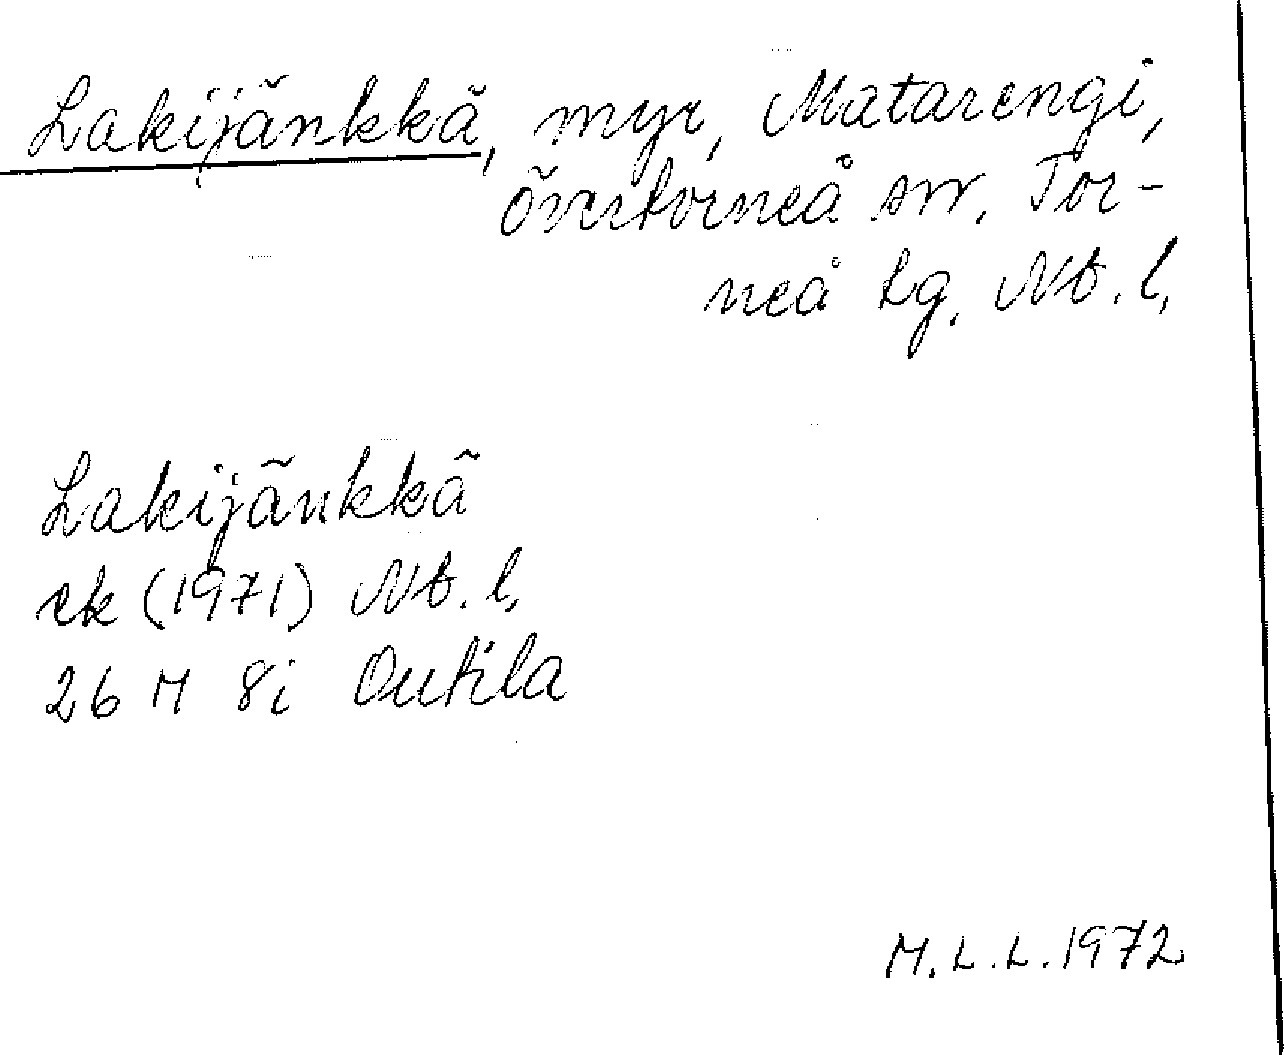 Lakijänkkä, myr, Matarengi,
Övertorneå sn. Tor-
neå lg. Nb. l.
Lakijänkkä
ek (1971) Nb. l.
26 M 8i Outila
M.L.L. 1972